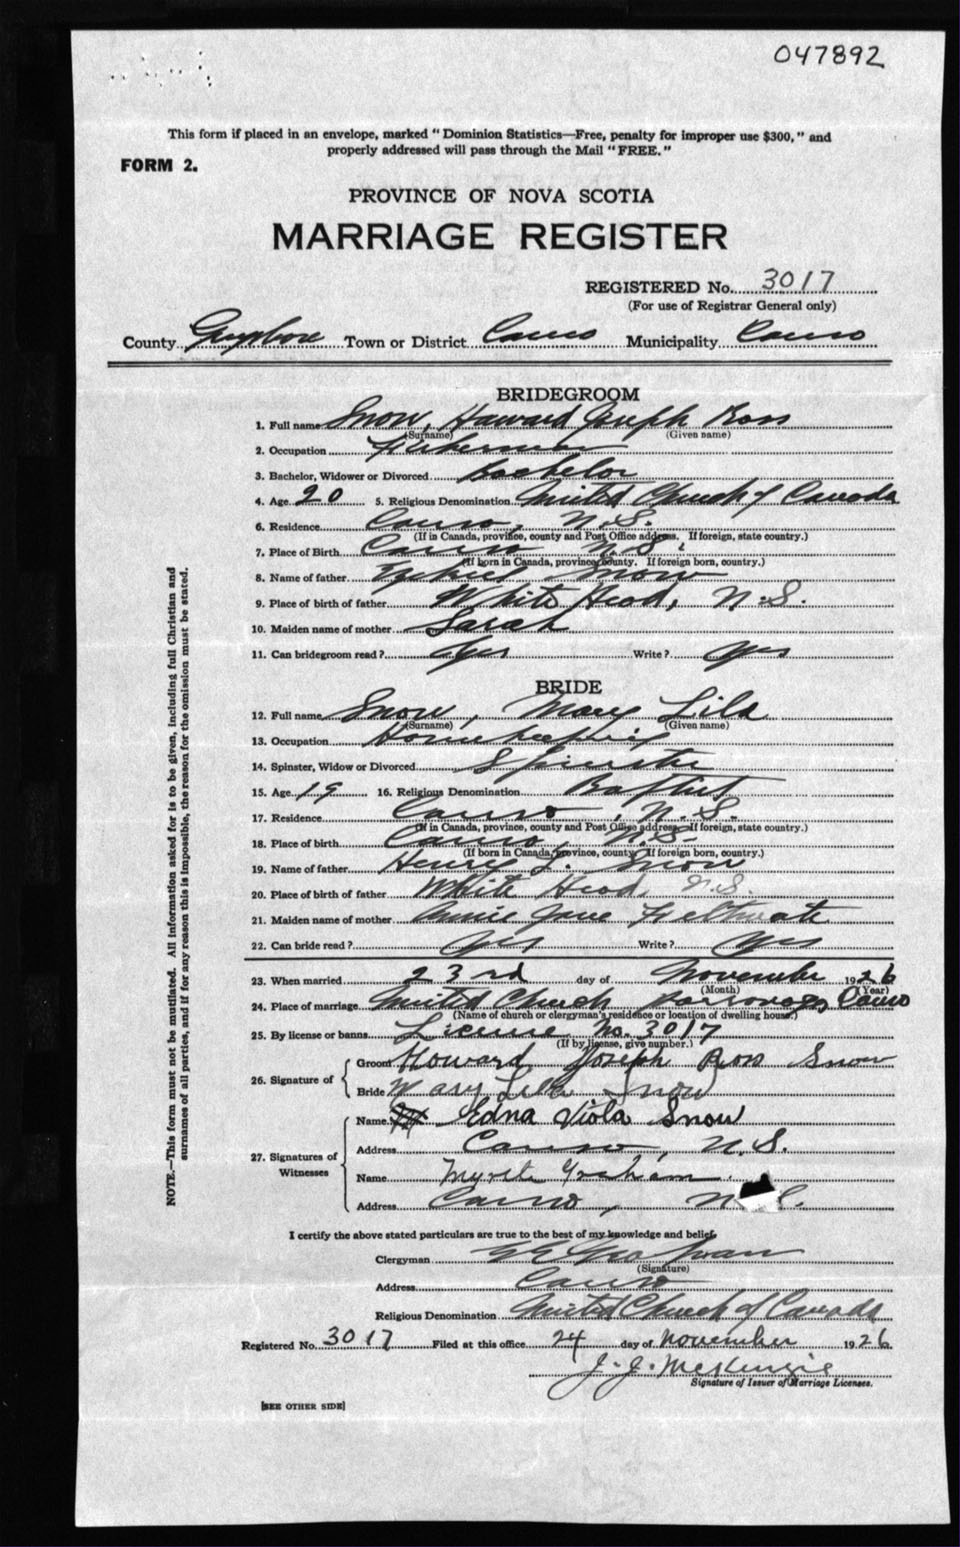 047892
This form if placed in an envelope, marked "Dominion Statistics—Free, penalty for improper use $300," and
properly addressed will pass through the Mail "FREE."
FORM 2.
PROVINCE OF NOVA SCOTIA
MARRIAGE REGISTER
REGISTERED No. 3017
(For use of Registrar General only)
County Guysboro Town or District Canso Municipality Canso
BRIDEGROOM
1. Full name Snow, Howard Joseph Ross
(Surname) (Given name)
2. Occupation Fisherman
3. Bachelor, Widower or Divorced Bachelor
4. Age 20 5. Religious Denomination United Church of Canada
6. Residence Canso, N.S.
(If in Canada, province, county and Post Office address. If foreign, state country.)
7. Place of Birth Canso N.S.
(If born in Canada, province, county. If foreign born, country.)
8. Name of father Ezekiel Snow
9. Place of birth of father White Head, N.S.
10. Maiden name of mother Sarah
11. Can bridegroom read? Yes Write? Yes
BRIDE
12. Full name Snow, Mary Lila
(Surname) (Given name)
13. Occupation Housekeeping
14. Spinster, Widow or Divorced Spinster
15. Age 19 16. Religious Denomination Baptist
17. Residence Canso, N.S.
(If in Canada, province, county and Post Office address. If foreign, state country.)
18. Place of birth Canso N.S.
(If born in Canada, province, county. If foreign born, country.)
19. Name of father Henry L. Snow
20. Place of birth of father White Head, N.S.
21. Maiden name of mother Annie Jane Feltmate
22. Can bride read? Yes Write? Yes
23. When married 23rd day of November 1926
(Month) (Year)
24. Place of marriage United Church Parsonage, Canso
(Name of church or clergyman's residence or location of dwelling house.)
25. By license or banns License No. 3017
(If by license, give number.)
26. Signature of Groom Howard Joseph Ross Snow
Bride Mary Lila Snow
27. Signatures of Witnesses
Name Edna Viola Snow
Address Canso, N.S.
Name Myrtle Graham
Address Canso, N.S.
I certify the above stated particulars are true to the best of my knowledge and belief.
Clergyman
(Signature)
Address Canso
Religious Denomination United Church of Canada
Registered No. 3017 Filed at this office 24 day of November 1926
J. J. McKenzie
Signature of Issuer of Marriage Licenses.
[SEE OTHER SIDE]
NOTE.—This form must not be mutilated. All information asked for is to be given, including full Christian and
surnames of all parties, and if for any reason this is impossible, the reason for the omission must be stated.